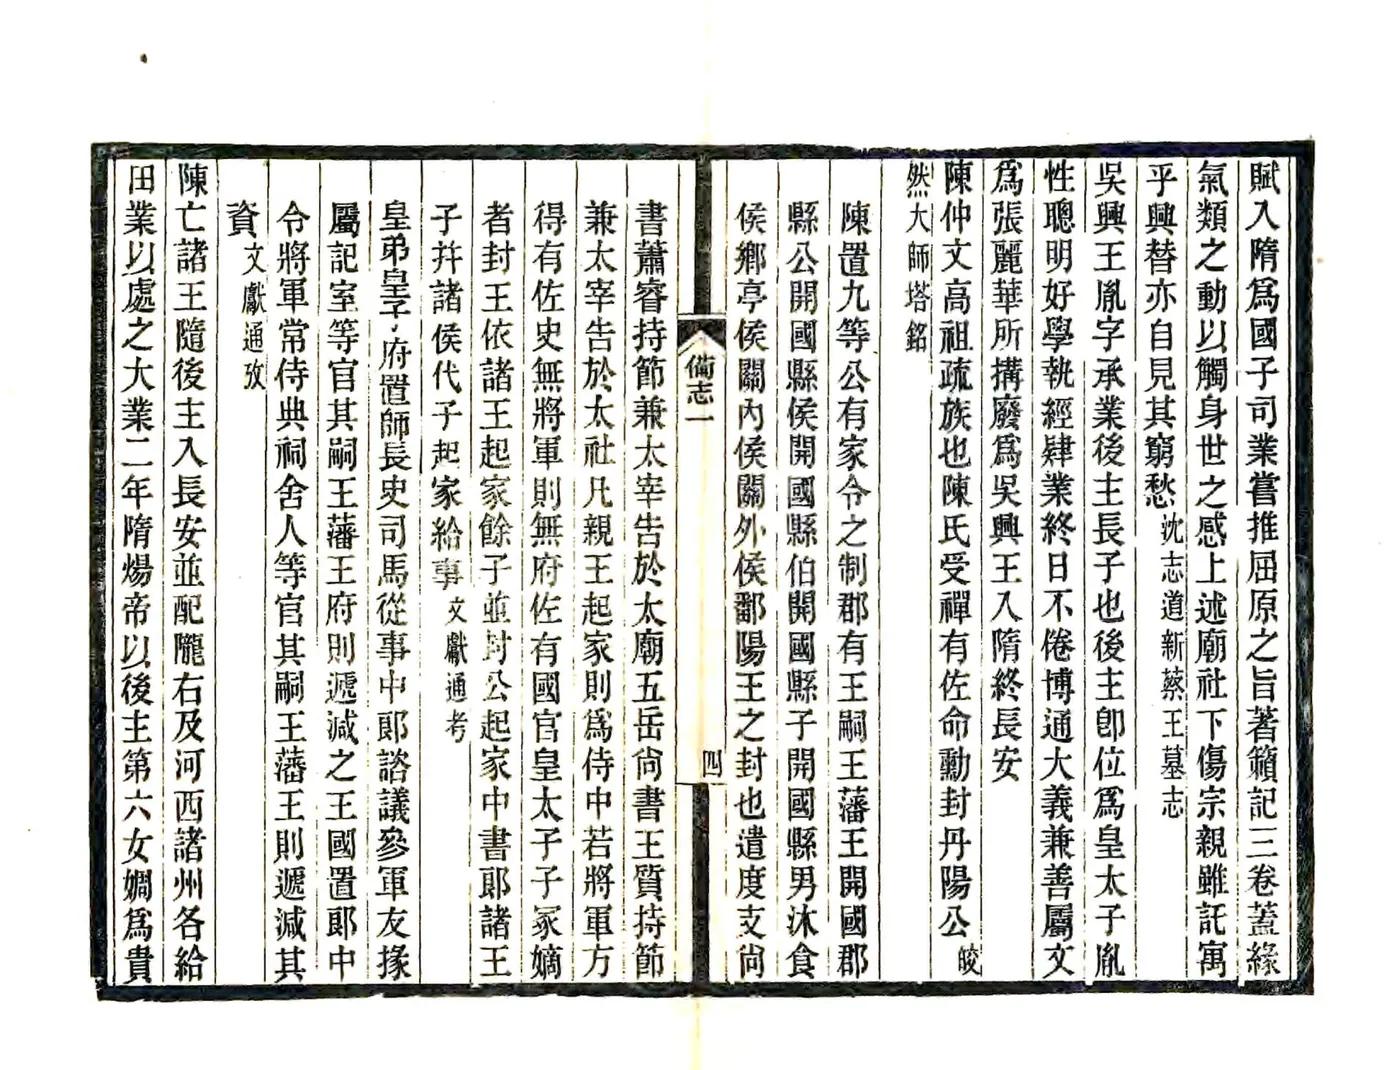 賦入隋爲國子司業嘗推屈原之旨著籟記三卷蓋緣
氣類之動以觸身世之感上述廟社下傷宗親雖託寓
乎興替亦自見其窮愁沈志道新蔡王墓志
吳興王胤字承業後主長子也後主卽位爲皇太子胤
性聰明好學執經肄業終日不倦博通大義兼善屬文
爲張麗華所搆廢爲吳興王入隋終長安
陳仲文高祖疏族也陳氏受禪有佐命勳封丹陽公皎
然大師塔銘
陳置九等公有家令之制郡有王嗣王藩王開國郡
縣公開國縣侯開國縣伯開國縣子開國縣男沐食
侯鄉亭侯關內侯關外侯鄱陽王之封也遣度支尙
備志一
四
書蕭睿持節兼太宰告於太廟五岳尙書王質持節
兼太宰告於太社凡親王起家則爲侍中若將軍方
得有佐史無將軍則無府佐有國官皇太子子冢嫡
者封王依諸王起家餘子並封公起家中書郞諸王
子幷諸侯代子起家給事文獻通考
皇弟皇子府置師長史司馬從事中郞諮議參軍友掾
屬記室等官其嗣王藩王府則遞減之王國置郞中
令將軍常侍典祠舍人等官其嗣王藩王則遞減其
資文獻通攷
陳亡諸王隨後主入長安並配隴右及河西諸州各給
田業以處之大業二年隋煬帝以後主第六女婤爲貴